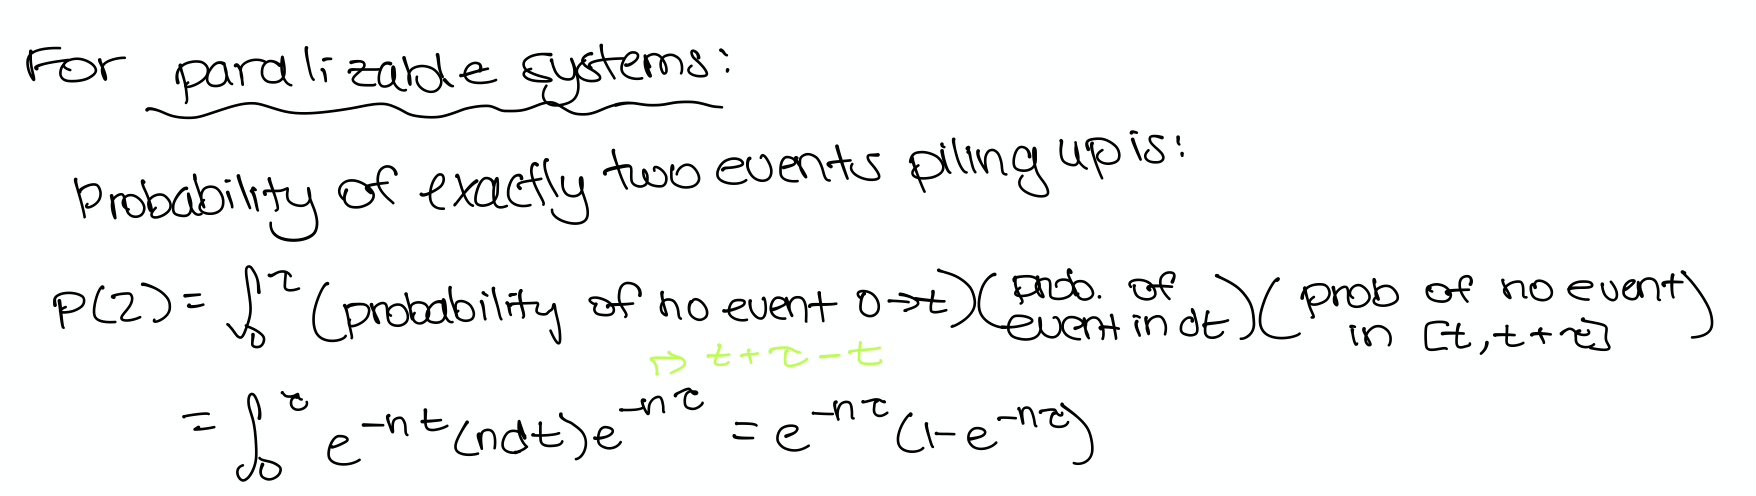 For paralizable systems:
Probability of exactly two events piling up is:
P(2) = ∫₀^τ (probability of no event 0→t)(prob. of event in dt)(prob of no event in [t, t+τ])
↦ t+τ-t
= ∫₀^τ e^{-nt}(ndt)e^{-nτ} = e^{-nτ}(1-e^{-nτ})